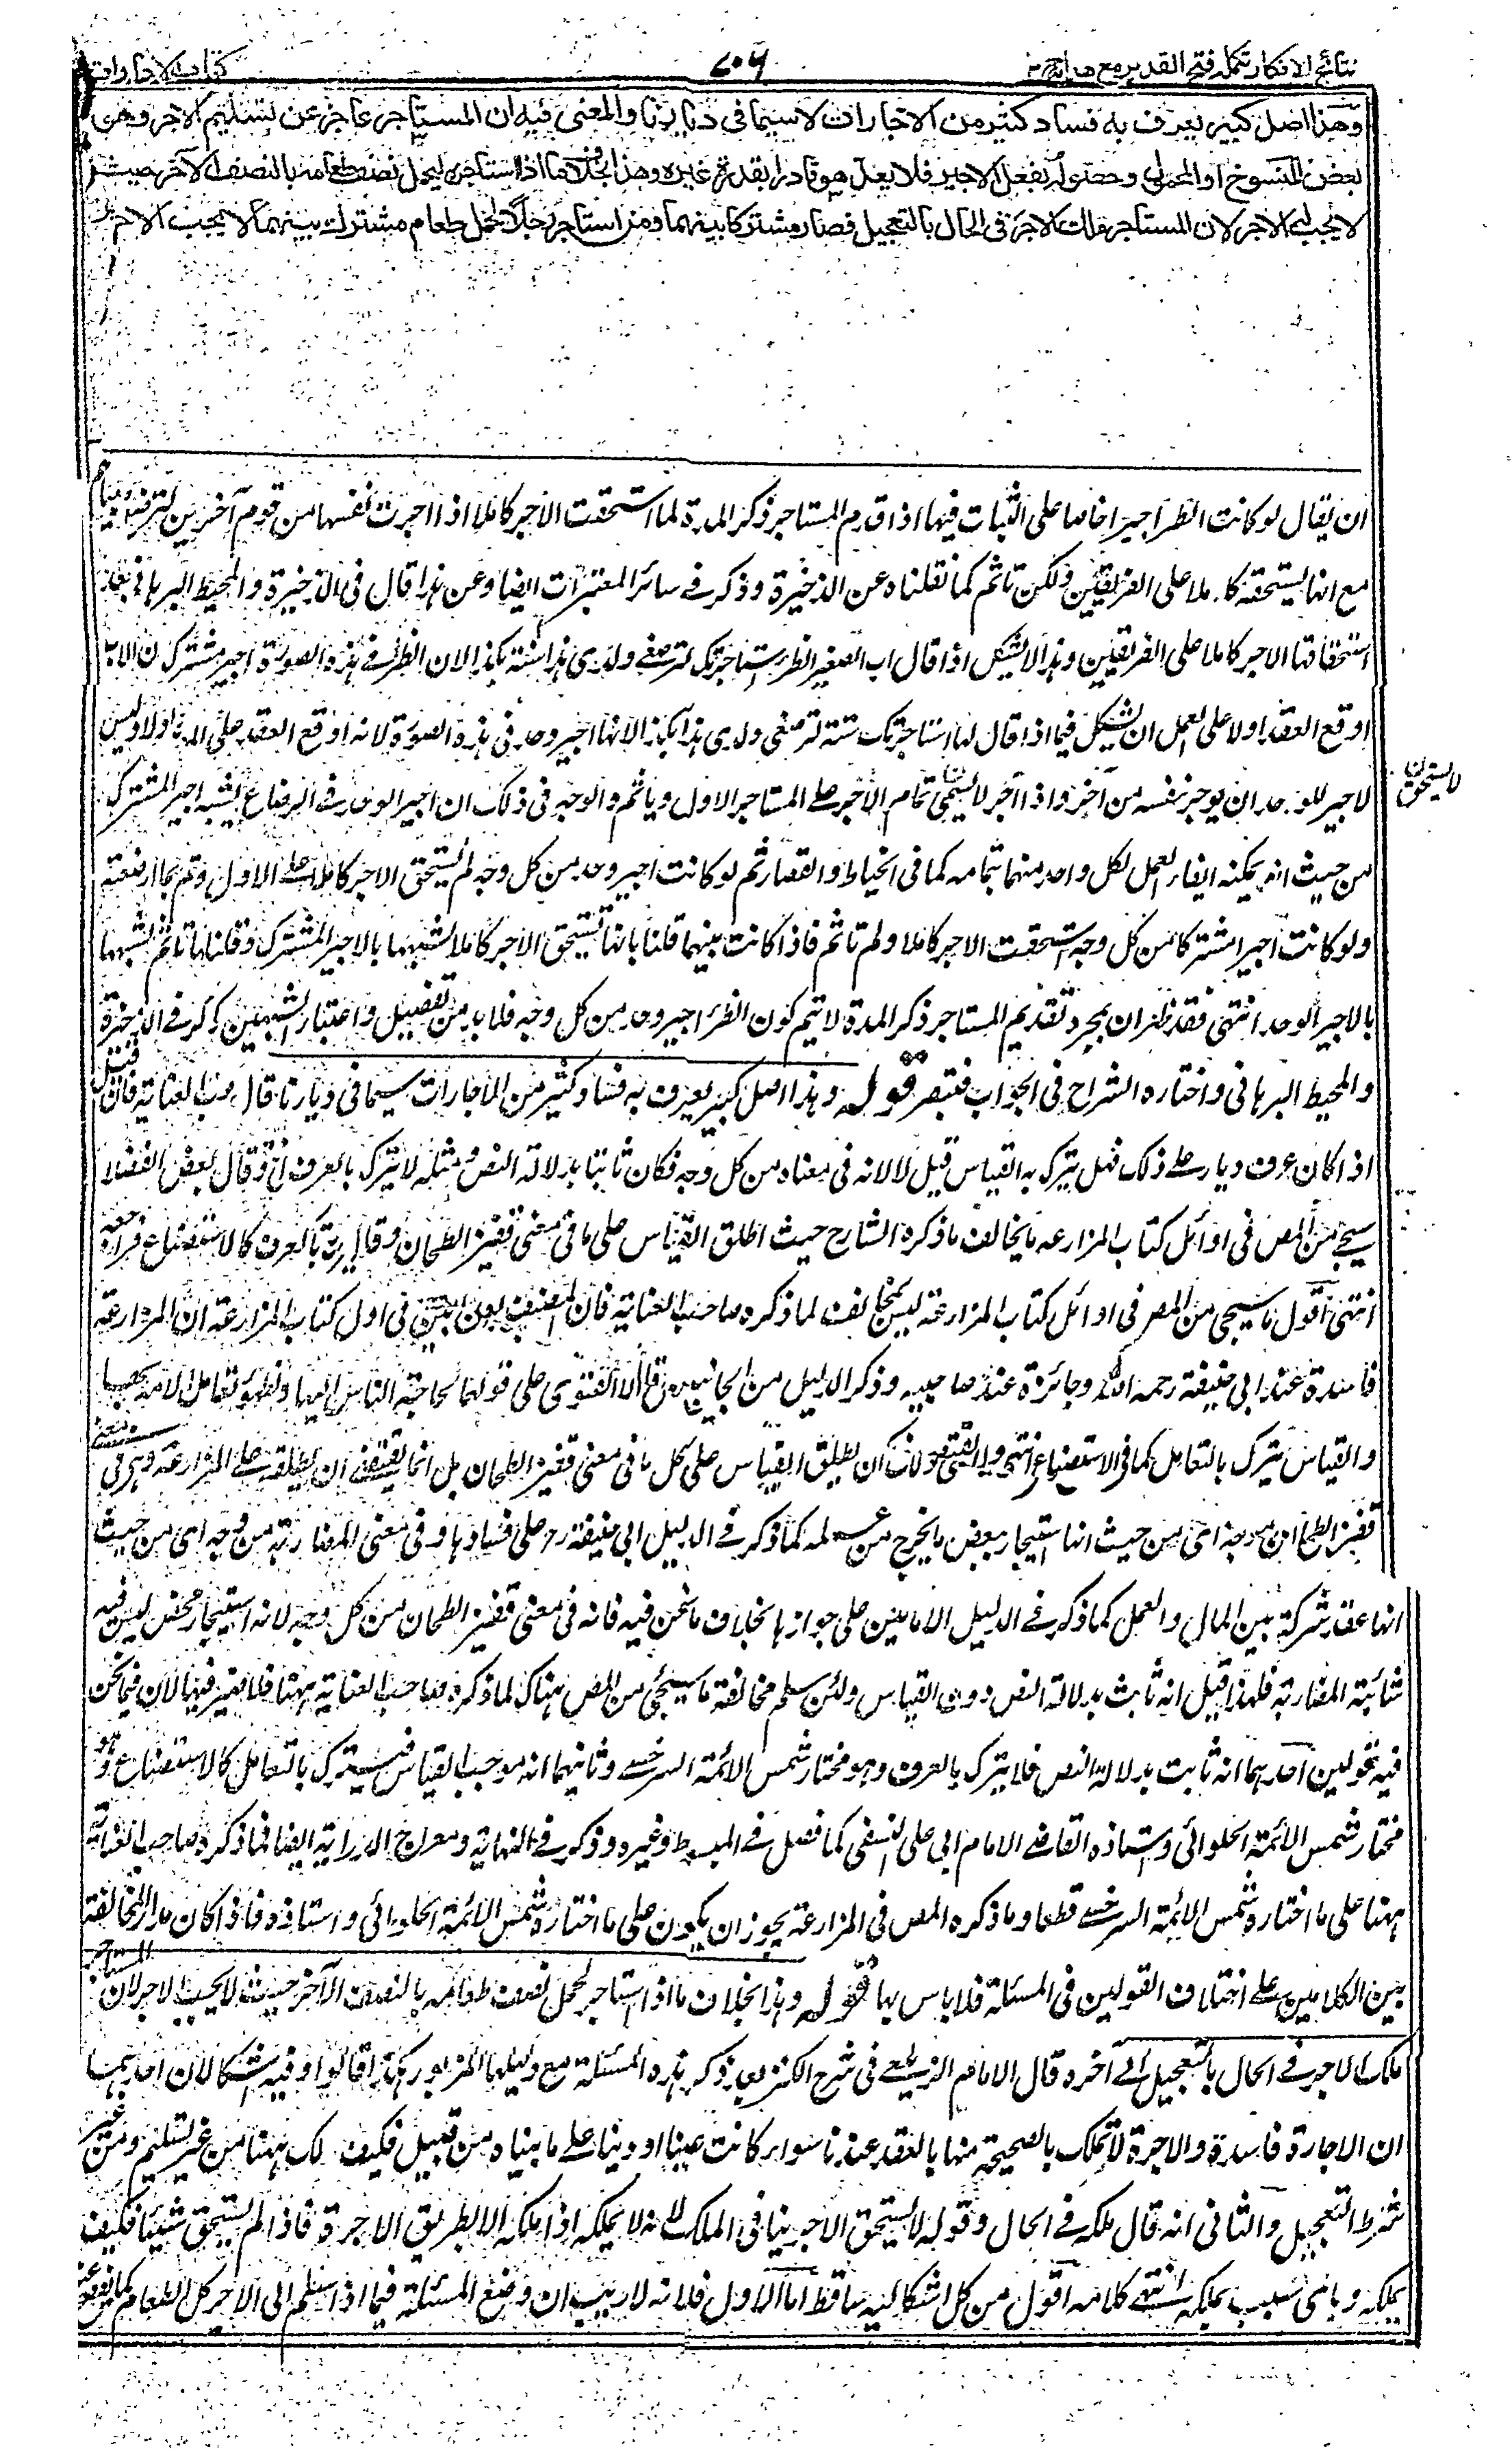 نتائج الافكار تكملة فتح القدير مع هداية ج ٣
٧٠٦
كتاب الاجارات
وهذا اصل كبير يعرف به فساد كثير من الاجارات لاسيما فى ديارنا والمعنى فيه ان المستاجر عاجز عن تسليم الاجر وهو
بعض المنسوخ او المحمول وحصوله بفعل الاجير فلا يعد هو قادرا بقدرة غيره وهذا بخلاف ما اذا استاجره ليحمل نصف طعامه بالنصف الآخر حيث
لا يجب له الاجر لان المستاجر ملك الاجر فى الحال بالتعجيل فصار مشتركا بينهما ومن استاجر رجلا لحمل طعام مشترك بينهما لا يجب الاجر
ان يقال لو كانت الظئر اجيرا خاصا على الثبات فيما اذا قدم المستاجر ذكر المدة لما استحقت الاجر كاملا اذا اجرت نفسها من قوم آخرين
مع انها يستحقه كاملا على الفريقين ولكن تاثم كما نقلناه عن الذخيرة وذكر فے سائر المعتبرات ايضا وعن هذا قال فى الذخيرة والمحيط البرهانى بعد
استحقاقها الاجر كاملا على الفريقين وهذا لا يشكل اذا قال اب الصغير للظئر استاجرتك لترضعى ولدى هذا سنة بكذا لان الظئر فے هذه الصورة اجير مشترك لان الاب
اوقع العقد اولا على العمل انما يشكل فيما اذا قال لها استاجرتك سنة لترضعى ولدى هذا بكذا لانها اجير وحد فى هذه الصورة لانه اوقع العقد على المدة اولا وليس
لاجير الوحد ان يوجر نفسه من آخر واذا آجر لا يستحق تمام الاجر على المستاجر الاول وياثم والوجه فى ذلك ان اجير الوحد فے الرضاع يشبه اجير المشترك
لا يستحق
من حيث انه يمكنه ايفاء العمل لكل واحد منهما بتمامه كما فى الخياط والقصار ثم لو كانت اجير وحد من كل وجه لم يستحق الاجر كاملا على الاول وتاثم بما صنعت
ولو كانت اجيرا مشتركا من كل وجه استحقت الاجر كاملا ولم تاثم فاذا كانت بينهما قلنا بانها تستحق الاجر كاملا لشبهها بالاجير المشترك وقلنا بانها تاثم لشبهها
بالاجير الوحد انتهى فقد ظهر ان بمجرد تقديم المستاجر ذكر المدة لا يتم كون الظئر اجير وحد من كل وجه فلا بد من تفصيل واعتبار الشبهين كما ذكر فے الذخيرة
والمحيط البرهانى واختاره الشراح فى الجواب فتبصر قوله وهذا اصل كبير يعرف به فساد كثير من الاجارات سيما فى ديارنا قال صاحب العناية فان قيل
اذا كان عرف ديار على ذلك فهل يترك به القياس قيل لا لانه فى معناه من كل وجه فكان ثابتا بدلالة النص ومثله لا يترك بالعرف انتهى وقال بعض الفضلاء
سيجئ من المص فى اوائل كتاب المزارعة ما يخالف ما ذكره الشارح حيث اطلق القياس على ما فى معنى قفيز الطحان وقال يترك بالعرف كالاستصناع فراجعه
انتهى اقول ما سيجى من المص فى اوائل كتاب المزارعة ليس بمخالف لما ذكره صاحب العناية فان المصنف بعد ان بين فى اول كتاب المزارعة ان المزارعة
فاسدة عند ابى حنيفة رحمه الله وجائزة عند صاحبيه وذكر الدليل من الجانبين قال الا ان الفتوى على قولهما لحاجة الناس اليها ولظهور تعامل الامة بها
والقياس يترك بالتعامل كما فى الاستصناع انتهى ولا يقتضى ذلك ان يطلق القياس على كل ما فى معنى قفيز الطحان بل انما يقتضى ان يطلقه على المزارعة وهى فى معنى
قفيز الطحان من وجه اى من حيث انها استيجار ببعض ما يخرج من عمله كما ذكر فے الدليل ابى حنيفة رح على فسادها وفى معنى المضاربة من وجه اى من حيث
انها عقد شركة بين المال والعمل كما ذكر فے الدليل الامامين على جوازها بخلاف ما نحن فيه فانه فى معنى قفيز الطحان من كل وجه لانه استيجار محض ليس فيه
شائبة المضاربة فلهذا قيل انه ثابت بدلالة النص دون القياس ولئن سلم مخالفة ما سيجئ من المص هناك لما ذكره صاحب العناية ههنا فلا ضير فيها لان فيما نحن
فيه قولين احدهما انه ثابت بدلالة النص فلا يترك بالعرف وهو مختار شمس الائمة السرخسے وثانيهما انه موجب القياس فيترك بالتعامل كالاستصناع وهو
مختار شمس الائمة الحلوائى واستاذه القاضے الامام ابى على النسفى كما فصل فے المبسوط وغيره وذكر فے النهاية ومعراج الدراية ايضا فما ذكره صاحب العناية
ههنا على ما اختاره شمس الائمة السرخسے قطعا وما ذكره المص فى المزارعة يجوز ان يكون على ما اختاره شمس الائمة الحلوائى واستاذه فاذا كان مدار المخالفة
بين الكلامين على اختلاف القولين فى المسئلة فلا باس بها قوله وهذا بخلاف ما اذا استاجر لحمل نصف طعامه بالنصف الآخر حيث لا يجب الاجر لان المستاجر
ملك الاجر فے الحال بالتعجيل الى آخره قال الامام الزيلعے فى شرح الكنز بعد ذكر هذه المسئلة مع دليلها المزبور هكذا قالوا وفيه اشكالان احدهما
ان الاجارة فاسدة والاجرة لا تملك بالصحيحة منها بالعقد عندنا سواء كانت عينا او دينا على ما بيناه من قبل فكيف ملك ههنا من غير تسليم ومن غير
شرط التعجيل والثانى انه قال ملكه فے الحال وقوله لا يستحق الاجر ينافى الملك لانه لا يملكه اذا ملكه الا بطريق الاجرة فاذا لم يستحق شيئا فكيف
يملكه وباى سبب يملكه انتهے كلامه اقول من كل اشكاليه ساقط اما الاول فلانه لا ريب ان وضع المسئلة فيما اذا سلم الى الاجير كل الطعام كما